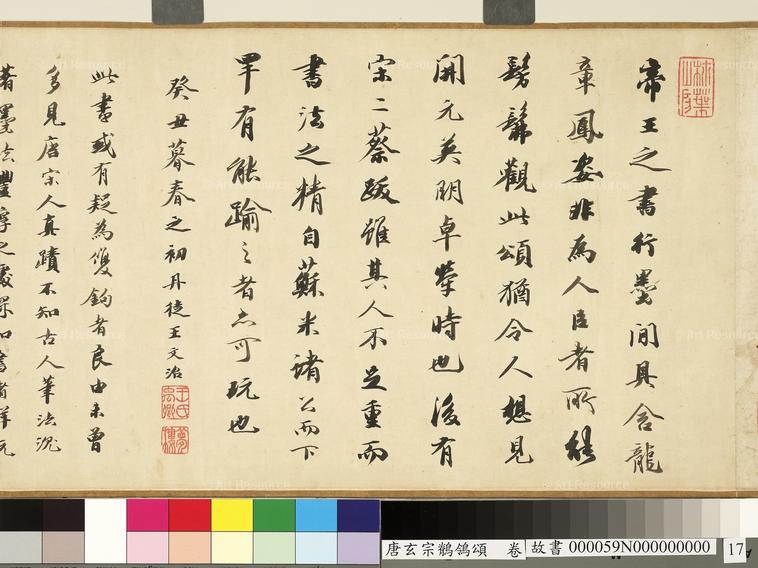 帝王之書行墨間具含龍
章鳳姿非為人臣者所能
髣髴觀此頌猶令人想見
開元英明卓犖時也後有
宋二蔡跋雖其人不足重而
書法之精自蘇米諸公而下
罕有能踰之者亦可玩也
癸丑暮春之初丹徒王文治
王氏禹卿
夢樓
此書或有疑為雙鉤者良由未曾
多見唐宋人真蹟不知古人筆法沉
著墨法豐厚之處
唐玄宗鶺鴒頌 卷
故書 000059N000000000
17